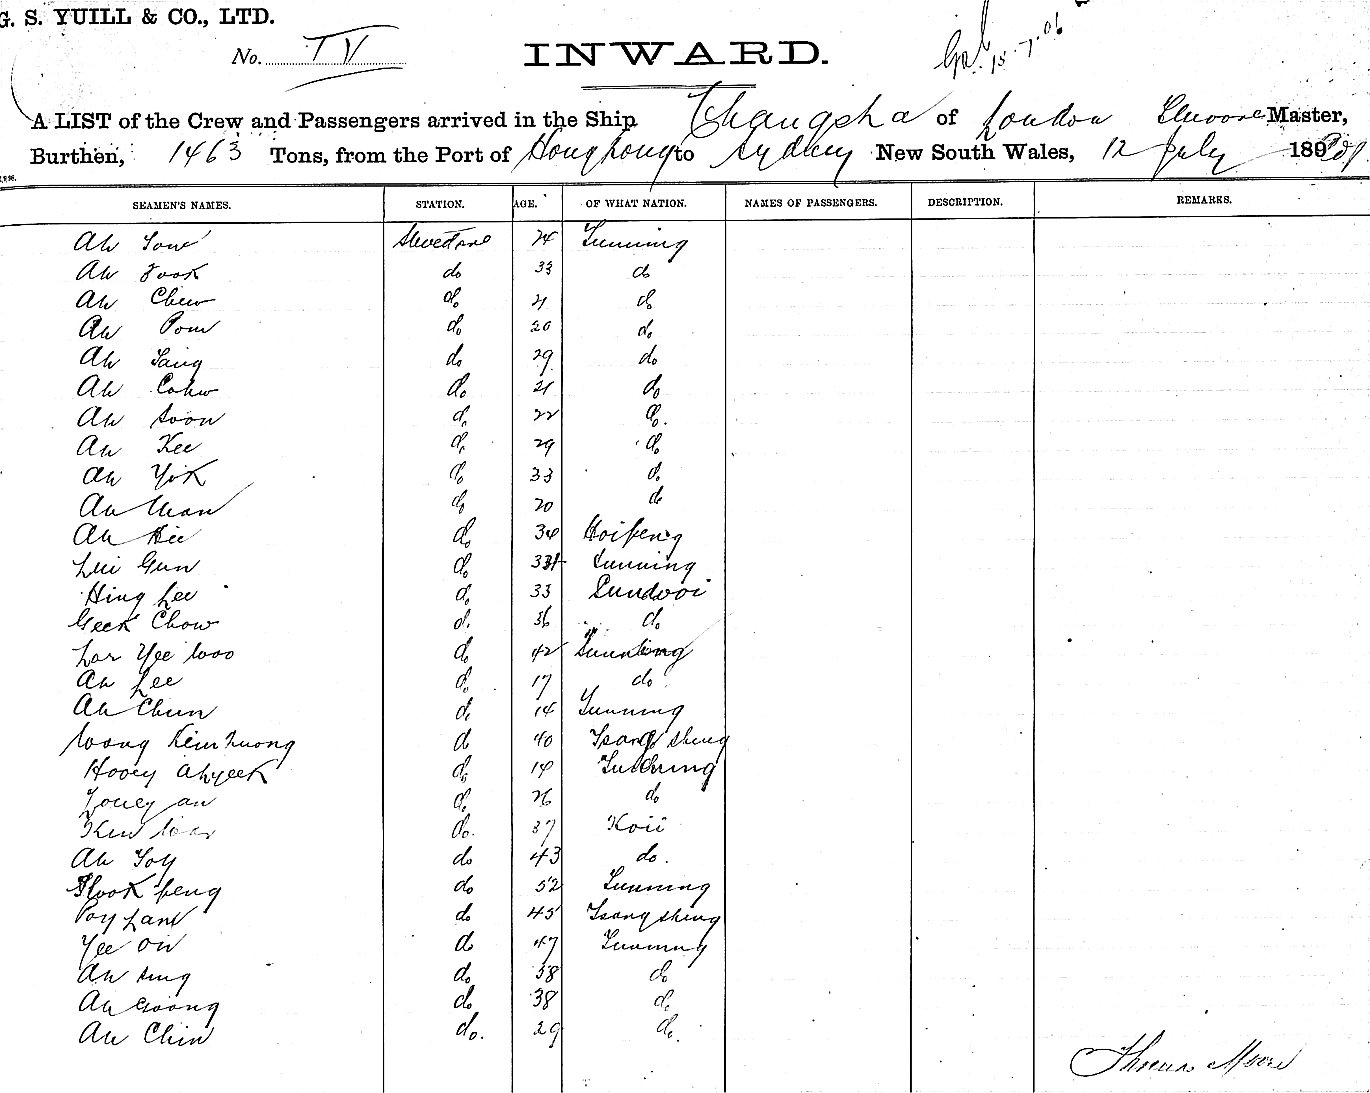 G. S. YUILL & CO., LTD.
No. IV
INWARD.
15.7.06
A LIST of the Crew and Passengers arrived in the Ship Changsha of London Master,
Burthen, 1463 Tons, from the Port of Hong Kong to Sydney New South Wales, 12 July 189
SEAMEN'S NAMES. STATION. AGE. OF WHAT NATION. NAMES OF PASSENGERS. DESCRIPTION. REMARKS.
Ah 24 Sunning
Ah Fook do 33 do
Ah Chew do 21 do
Ah Pow do 20 do
Ah do 29 do
Ah do 21 do
Ah Soon do 22 do
Ah Kee do 29 do
Ah Yik do 33 do
Ah do 20 do
Ah do Hoipeng
Lui Gun do Sunning
Hing Lee do 33 Sundooi
Geek Chow do 36 do
Lar Yee Woo do 42 Sunning
Ah Lee do 17 do
Ah Chun do 14 Sunning
Wong do 40 Tsang Sheng
Hooey Ahyeek do 14 Sunning
do 26 do
do 37 Koii
Ah do 43 do.
do 52 Sunning
do 45 Tsang sheng
Yee On do 47 Sunning
Ah Sing do 58 do
Ah do 38 do
Ah Chin do. 29 do.
Thomas Moore